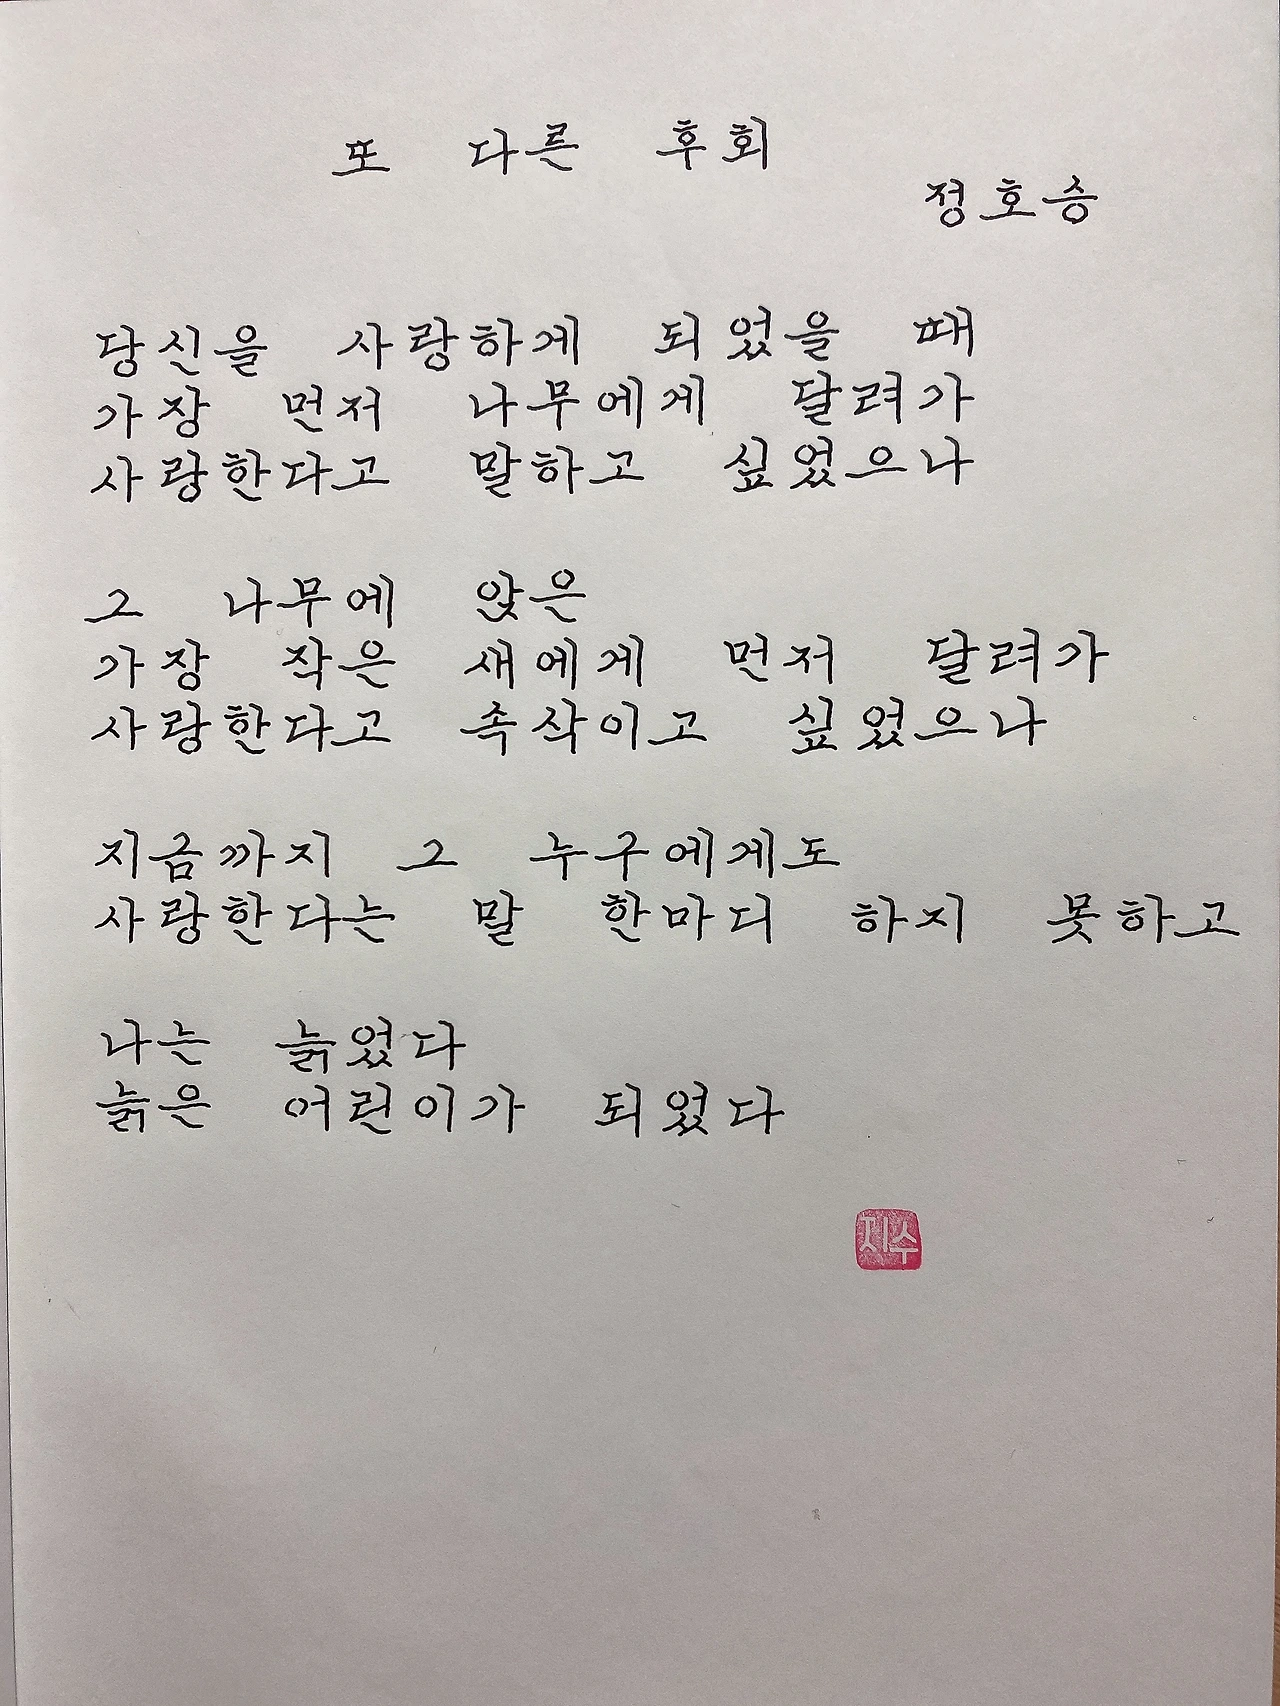 또 다른 후회
정호승
당신을 사랑하게 되었을 때
가장 먼저 나무에게 달려가
사랑한다고 말하고 싶었으나
그 나무에 앉은
가장 작은 새에게 먼저 달려가
사랑한다고 속삭이고 싶었으나
지금까지 그 누구에게도
사랑한다는 말 한마디 하지 못하고
나는 늙었다
늙은 어린이가 되었다
지수